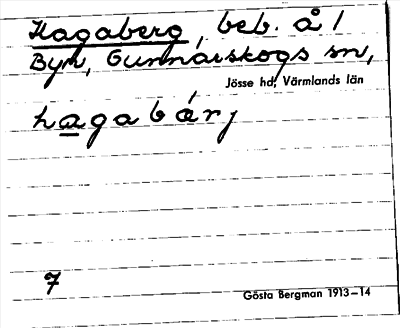 Hagaberg, beb. å 1
Byn, Gunnarskogs sn,
Jösse hd, Värmlands län
hagabárj
7
Gösta Bergman 1913–14